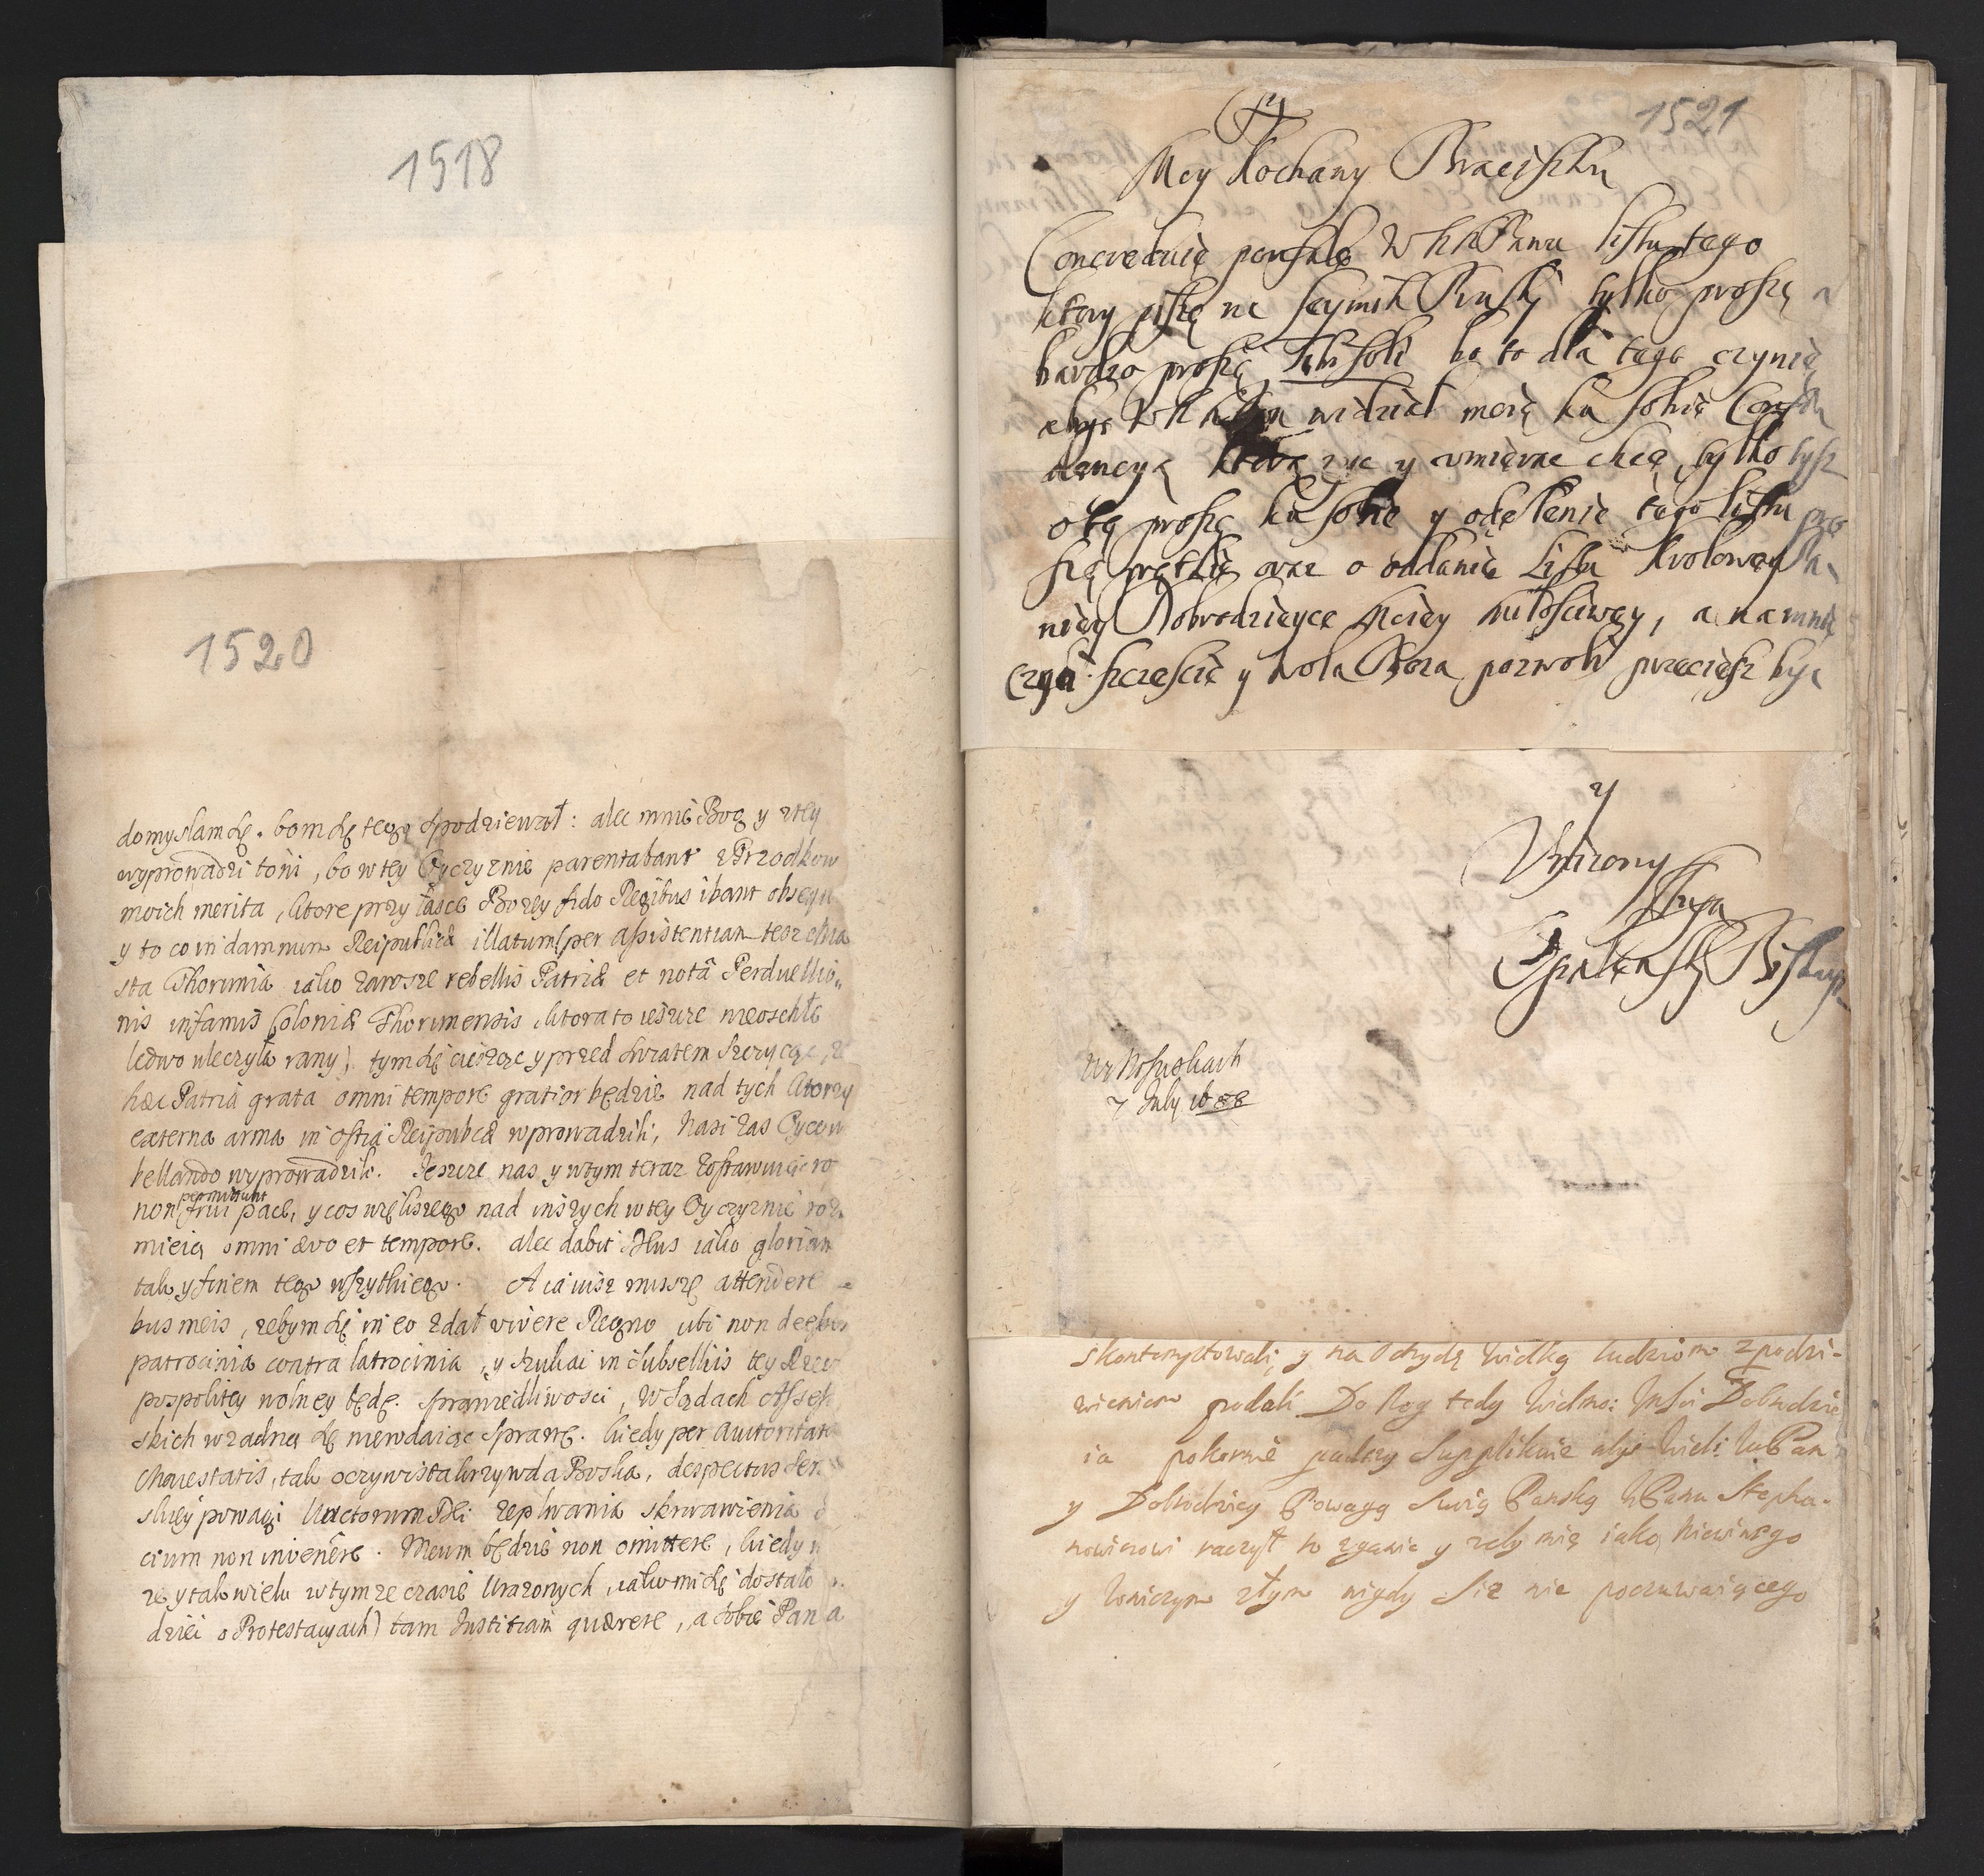 1518
1520
domyslam się. bom się tego spodziewał: alec mnie Bog y z tey
wyprowadzi toni, bo w tey Oyczyznie parentabant z Przodkow
moich merita, ktore przy łasce Bozey fido Regibus ibant obsequ
y to co in damnum Reipublicæ illatum (per assistentiam
Thorunia iako zawsze rebellis Patriæ et notâ Perduellio„
nis infamis Coloniæ Thorunensis ktora to ieszcze nieoschłe
ledwo uleczyła rany). tym się ciesząc y przed swiatem szczycąc,
hæc Patria grata omni tempore gratior będzie nad tych ktorzy
externa arma in ostia Reipubcæ wprowadzili, Nasi zas Oycow
bellando wyprowadzili. Jeszcze nas y w tym teraz
non permittunt frui pace, y cos większego nad inszych w tey Oyczyznie roz.
mieią omni ævo et tempore. alec dabit Deus iako gloriam
tak y finem tego wszytkiego. A ia iusz muszę attendere
bus meis, zebym się in eo zdał vivere Regno ubi non
patrocinia contra latrocinia, y szukai in Subselliis tey Rzeczy
pospolitey wolney będę. sprawiedliwosci, w Sądach Assess
skich w zadną się niewdaiąc Sprawę. kiedy per Autoritatem
Maiestatis, tak oczywista krzywda Boska, despectus
sługi powagi Unctorum DEi zeplwania skrwawienia
cium non invenere. Meum będzie non omittere, kiedy
ze y tak wielu w tymze czasie Urazonych, iako mi się dostało
dziei o Protestacyach) tam Justitiam quærere, a sobie Pana
1521
Mcy Kochany Braciszku
Concreduię poufale WMMPanu listu tego
ktory piszę na seymik Pruski tylko proszę
bardzo proszę sub soli bo to dla tego czynię
abys WMM Pan widział moię ku sobie Confi
dencyą ktorą zyc y umierac chcę, tylko tysz
o tę proszę ku sobie y odesłenie tego listu pro
szę prętkie oraz o oddanie Listu Krolowey Pa
niey Dobrodzieyce Mciey miłosciwey, a na mnie
czyli szczescie y wola Boza pozwoli przeciesz byc
y
Unizony
Sługa
Opalenski Biskup
7 July 1688
skontemptowali, y na Ochydę wielką ludziom z podzi-
wieniem podali. Do Nog tedy Wielmo:
ia pokornie padszy Supplikuie abys
y Dobrodziey Powagą Swią Panską WPanu Stepha-
nowiczowi raczył y zeby mię iako niewinnego
y w niczym złym nigdy Sie nie poczuwaiącego